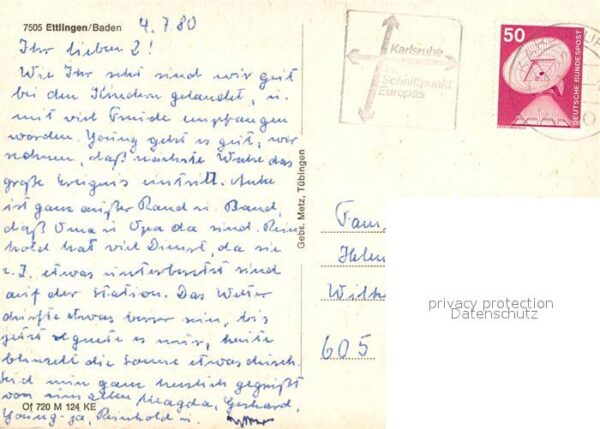 7505 Ettlingen/Baden
4.7.80
Ihr lieben 2!
Wie Ihr seht sind wir gut
bei den Kindern gelandet, u.
mit viel Freude empfangen
worden. Young geht es gut, wir
rechnen, daß nächste Woche das
große Ereignis eintritt. Anke
ist ganz außer Rand u. Band,
daß Oma u. Opa da sind. Rein
hold hat viel Dienst, da sie
z.Z. etwas unterbesetzt sind
auf der Station. Das Wetter
dürfte etwas besser sein, bis
jetzt regnete es nur, heute
blinzelt die Sonne etwas durch.
Seid nun ganz herzlich gegrüßt
von uns allen Magda, Gerhard,
Young-ja, Reinhold u.
Of 720 M 124 KE
Gebr. Metz, Tübingen
Karlsruhe
im
Schnittpunkt
Europas
50
DEUTSCHE BUNDESPOST
Fam.
Helm
Wilh
605
privacy protection
Datenschutz